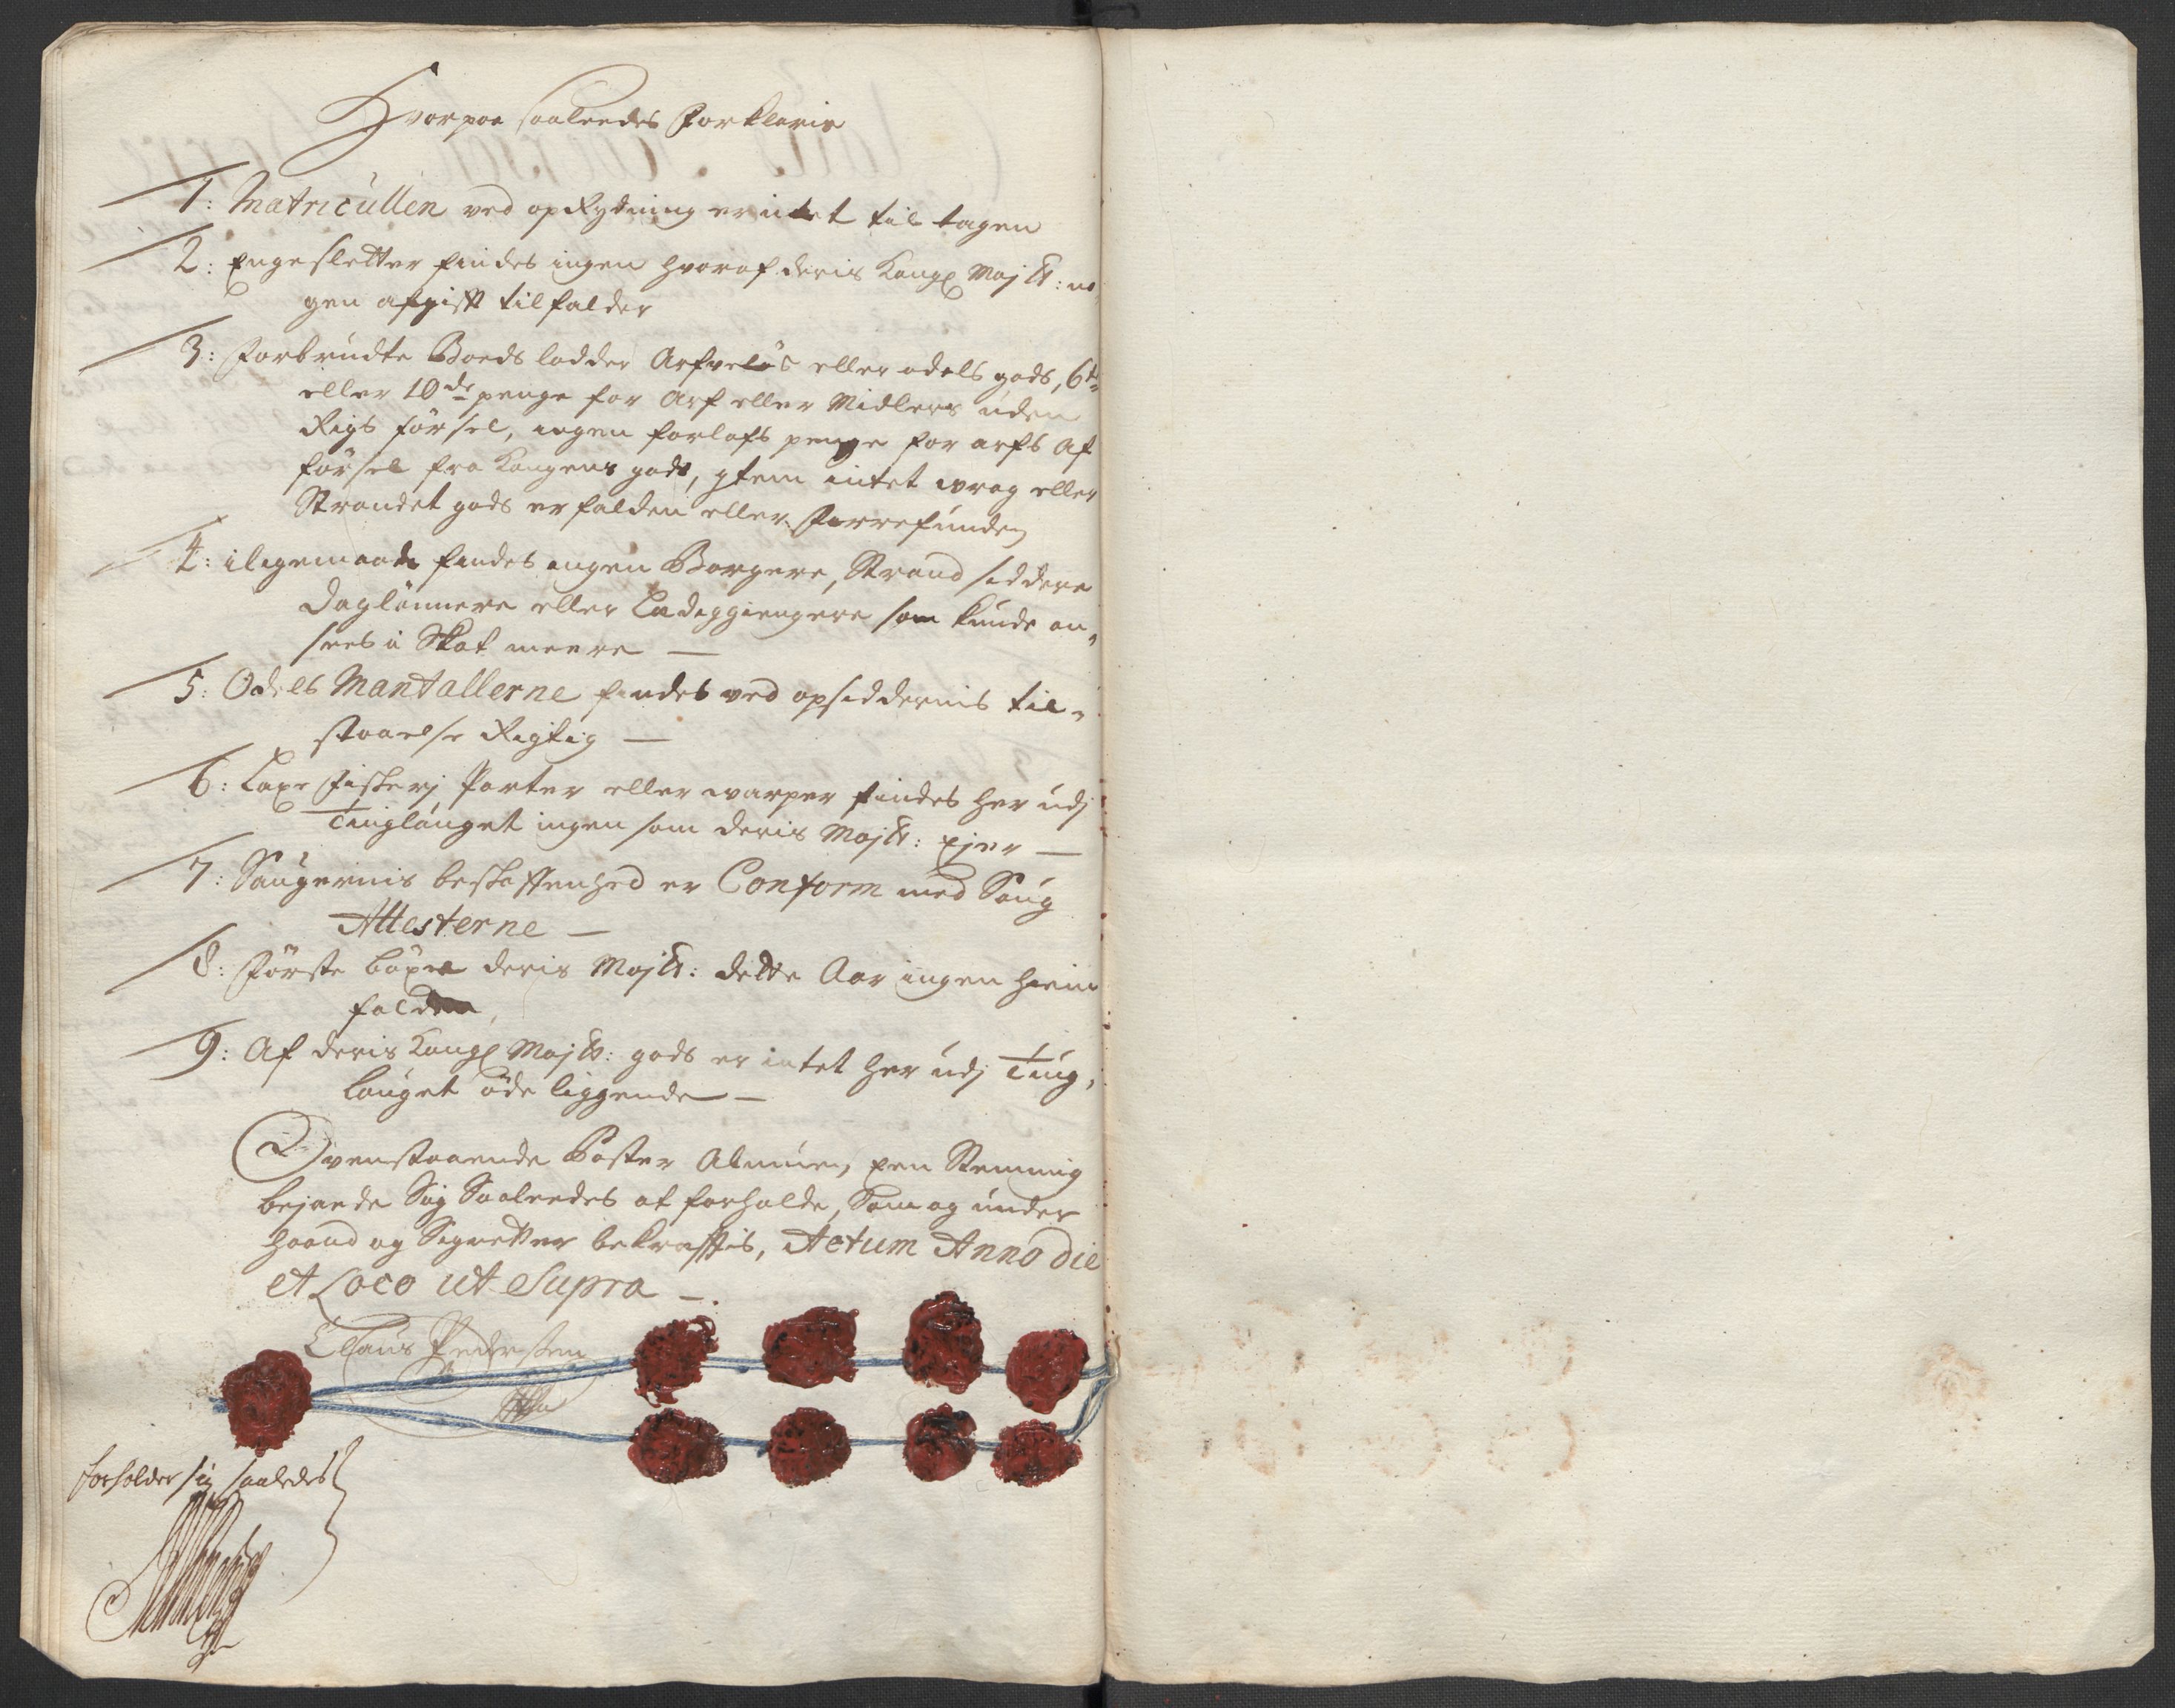 Hvorpaa saaleedes Forklaris
1: Matricullen ved opRydning er intet til tagen
2: Engesletter findes ingen hvoraf deris Kongl Majtt: no¬
gen afgift tilfalder
3: Forbrudte Boeds lodder Arfveløs eller odels gods, 6te
eller 10de penge for Arf eller Midlers uden
Rigs førsel, ingen forlofs penge for arfs af
førsel fra Kongens gods, Item intet wrag eller
Strandet gods er falden eller forrefunden
4: iligemaade findes ingen Borgere, Strand siddere
Daglønnere eller Ledeggiengere som kunde an¬
sees i Skat meere —
5: Odels Mantallerne findes ved opsiddernis til¬
staaelse Rigtig —
6: Laxe fiskerj Parter eller warper findes her udj
Tinglauget ingen som deris Majtt: Ejer —
7: Saugernis beskaffenhed er Conform med Saug
Attesterne —
8: Første böxel deris Majtt: dette Aar ingen hiem
falden
9: Af deris Kongl Majts: gods er intet her udj Ting¬
lauget øde liggende —
Ovenstaaende Poster Almuen, Een Stemmig
bejaede Sig Saaleedes at forholde, Som og under
haand og Signetter bekraftis, Actum Anno die
et Loco ut Supra —.
Claus Pedersen
forholder sig saaledes